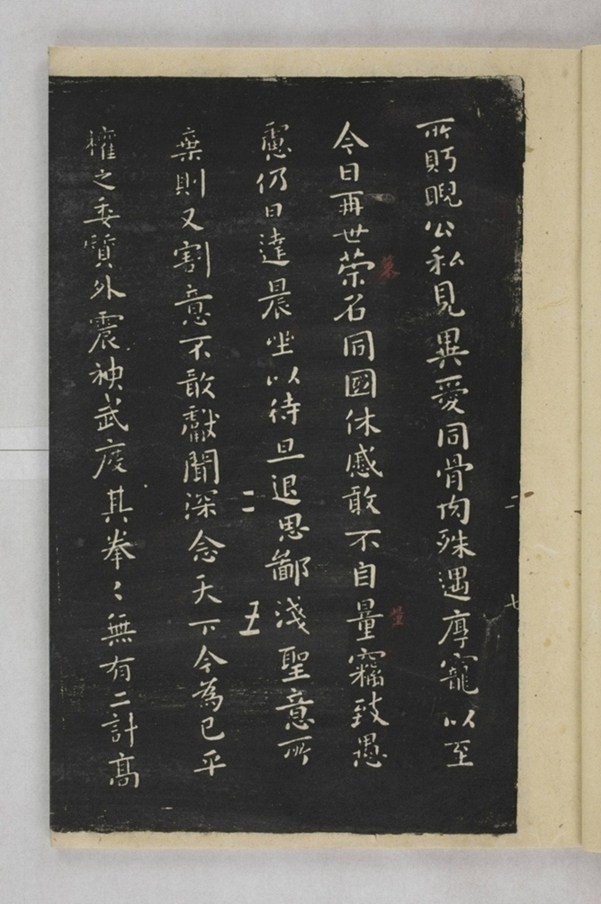 所眄睨公私見異愛同骨肉殊遇厚寵以至
今日再世荣名同國休慼敢不自量竊致愚
慮仍日達晨坐以待旦退思鄙淺聖意所
棄則又割意不敢獻聞深念天下今為已平
權之委質外震神武度其拳〻無有二計高
二
五